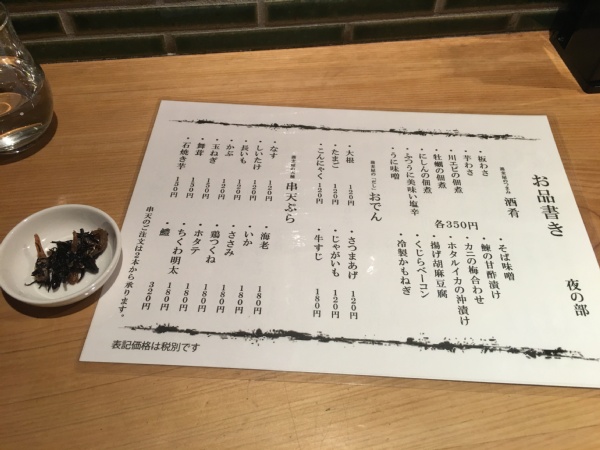 お品書き
夜の部
酒肴
・板わさ
・芋わさ
・川エビの佃煮
・牡蠣の佃煮
・にしんの佃煮
・ふつうに美味い塩辛
・うに味噌
各350円
・そば味噌
・鰊の甘酢漬け
・カニの梅合わせ
・ホタルイカの沖漬け
・揚げ胡麻豆腐
・くじらベーコン
・冷製かもねぎ
おでん
・大根 120円
・たまご 120円
・こんにゃく 120円
・さつまあげ 120円
・じゃがいも 120円
・牛すじ 180円
串天ぷら
・なす 120円
・しいたけ 120円
・長いも 120円
・かぶ 120円
・玉ねぎ 120円
・舞茸 150円
・石焼き芋 150円
・海老 180円
・いか 180円
・ささみ 180円
・鶏つくね 180円
・ホタテ 180円
・ちくわ明太 180円
・鱧 320円
串天のご注文は2本から承ります。
表記価格は税別です